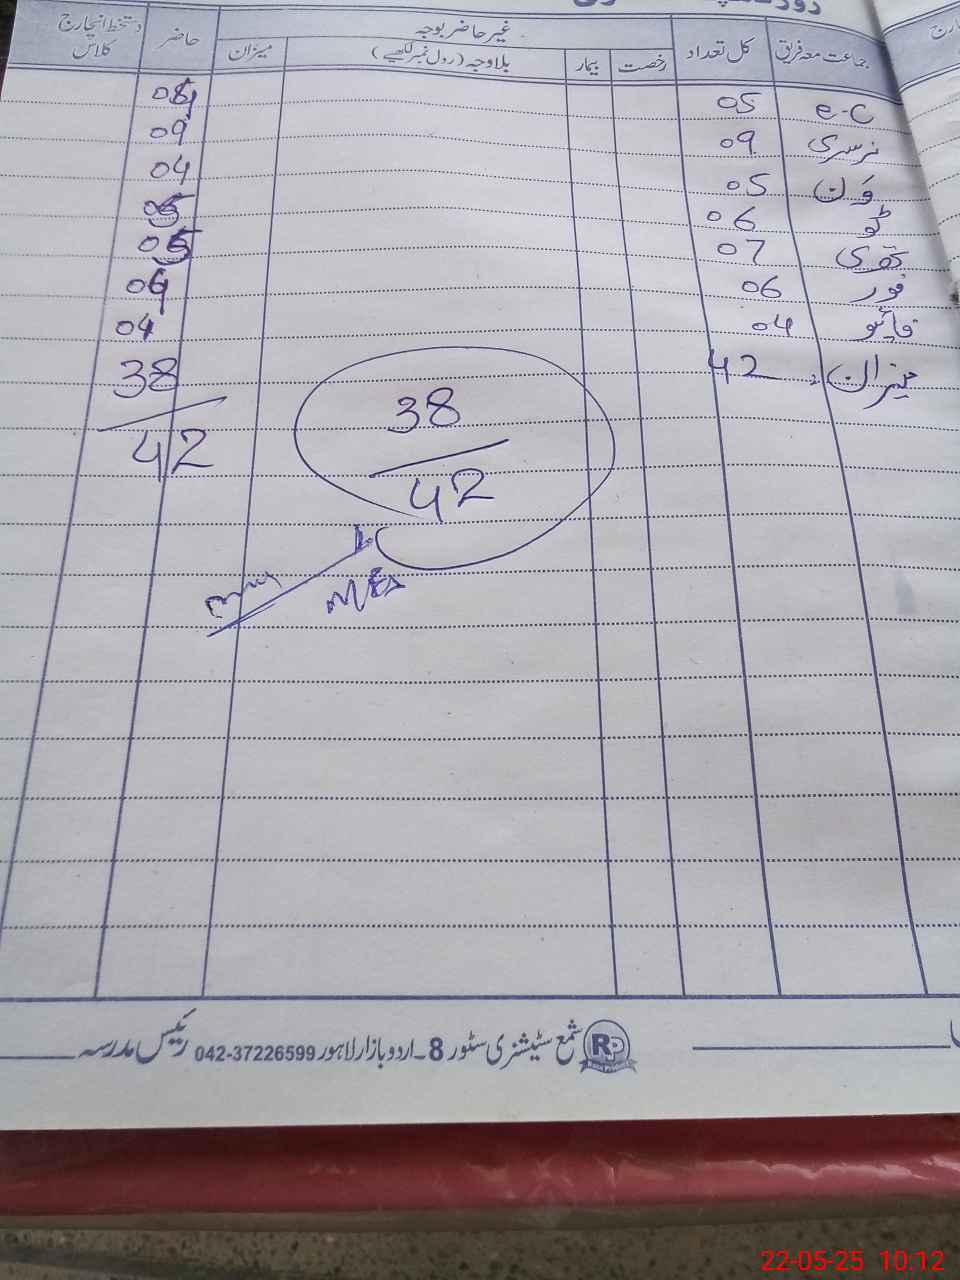 جماعت معہ فریق کل تعداد غیر حاضر بوجہ حاضر دستخط انچارج کلاس
رخصت بیمار بلاوجہ (رول نمبر لکھیے) میزان
e-C 05
نرسری 09 09
ون 05 04
ٹو 06 05
تھری 07
فور 06
فائیو 04 04
میزان 42 38
42
38
42
شمع سٹیشنری سٹور 8۔اردو بازار لاہور 042-37226599 رئیس مدرسہ
RP
22-05-25 10:12